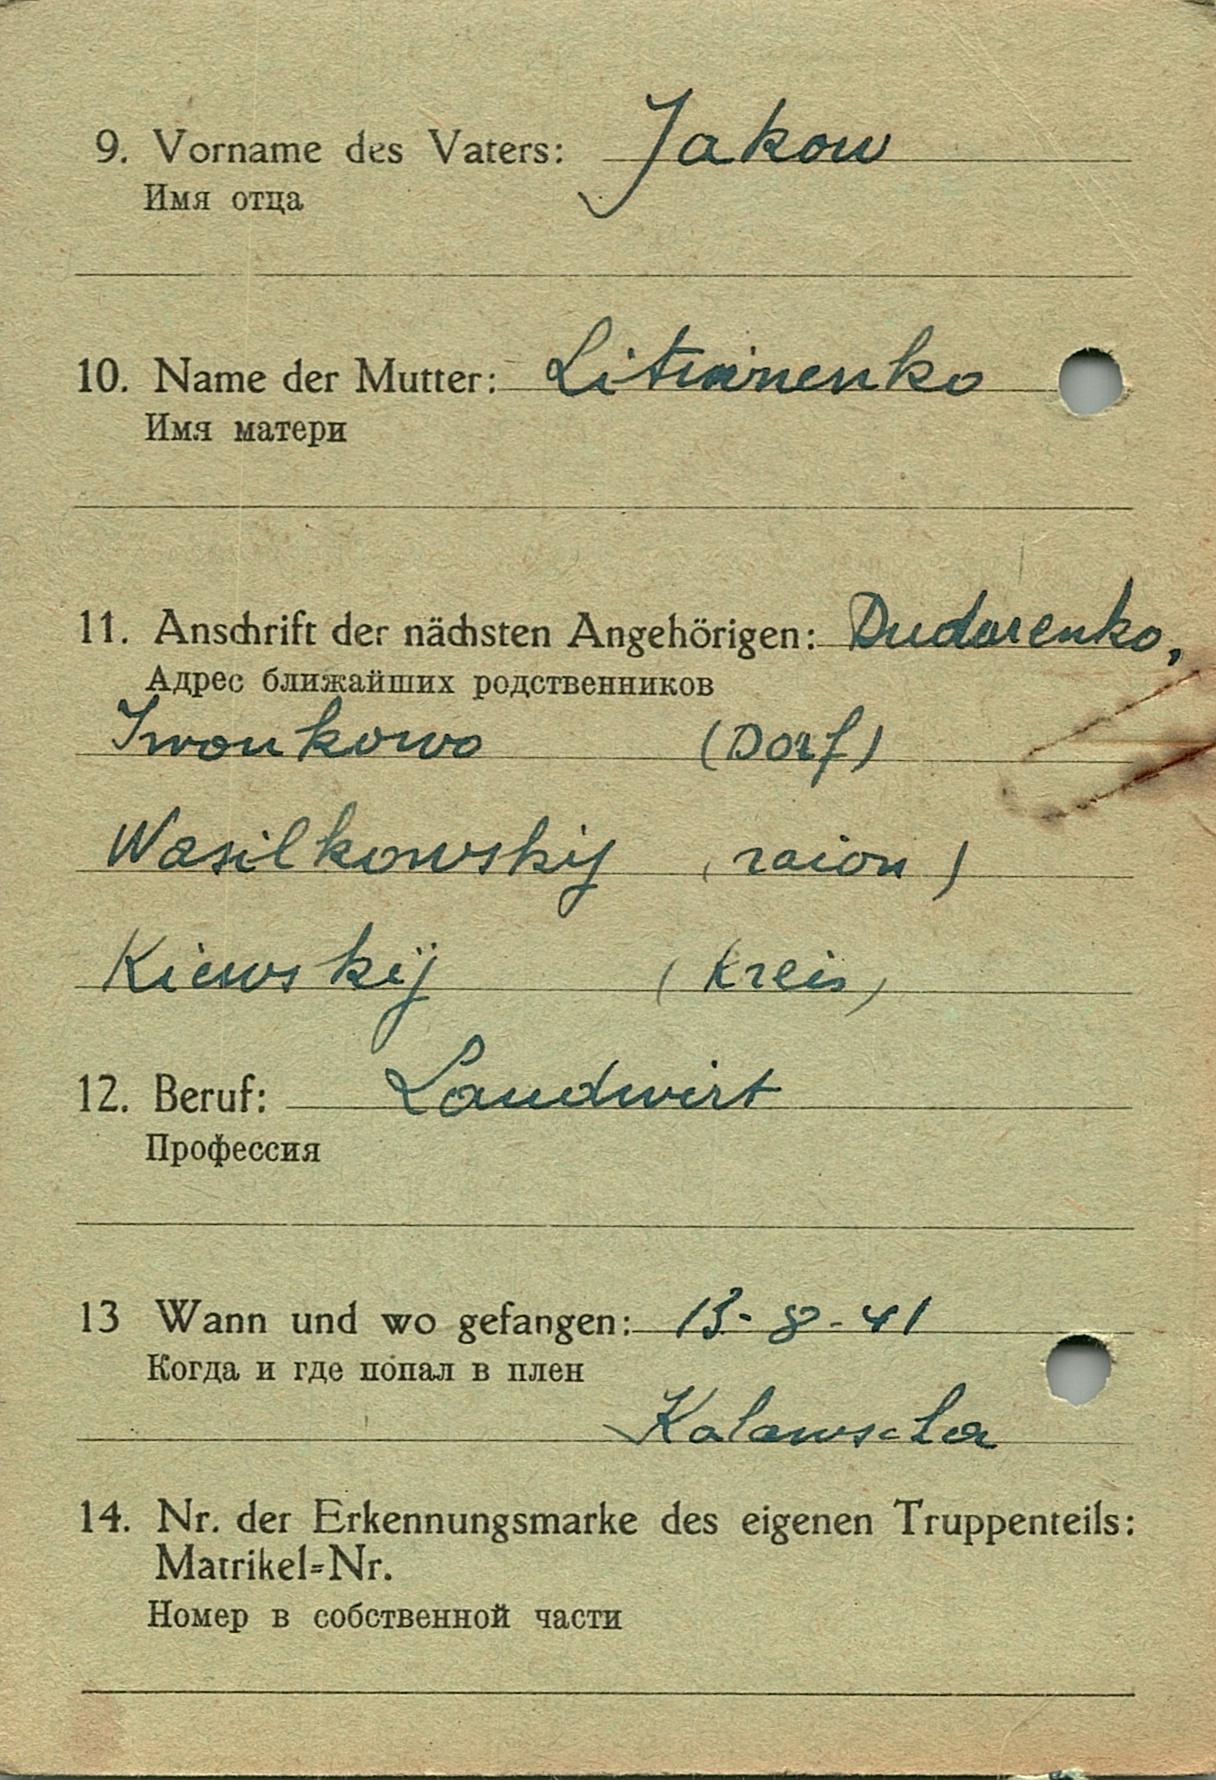 9. Vorname des Vaters: Jakow
Имя отца
10. Name der Mutter:
Имя матери
11. Anschrift der nächsten Angehörigen: Dudarenko,
Адрес ближайших родственников
Iwonkowo (Dorf)
Wasilkowskij (raion)
Kiewskij (Kreis)
12. Beruf: Landwirt
Профессия
13 Wann und wo gefangen: 13-8-41
Когда и где попал в плен
14. Nr. der Erkennungsmarke des eigenen Truppenteils:
Matrikel=Nr.
Номер в собственной части